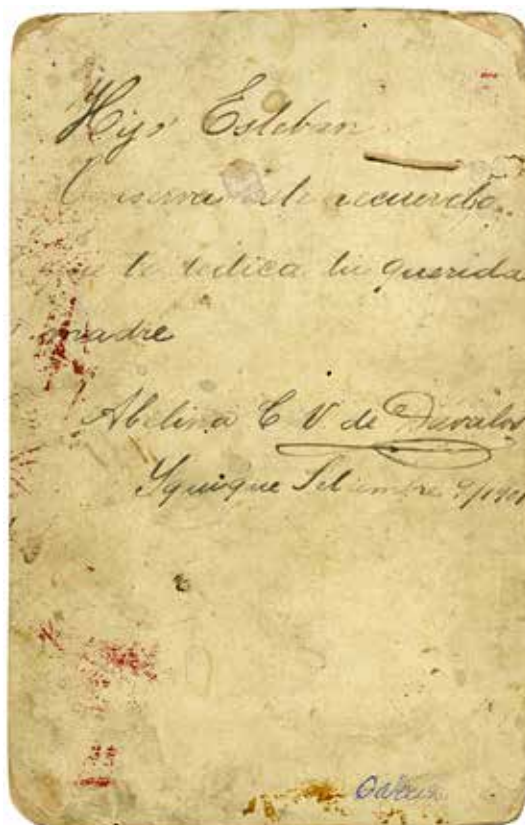 Hijo Esteban
Conserva este recuerdo
que te dedica tu querida
madre
Abelina C V de Davalos
Yquique Setiembre 9/